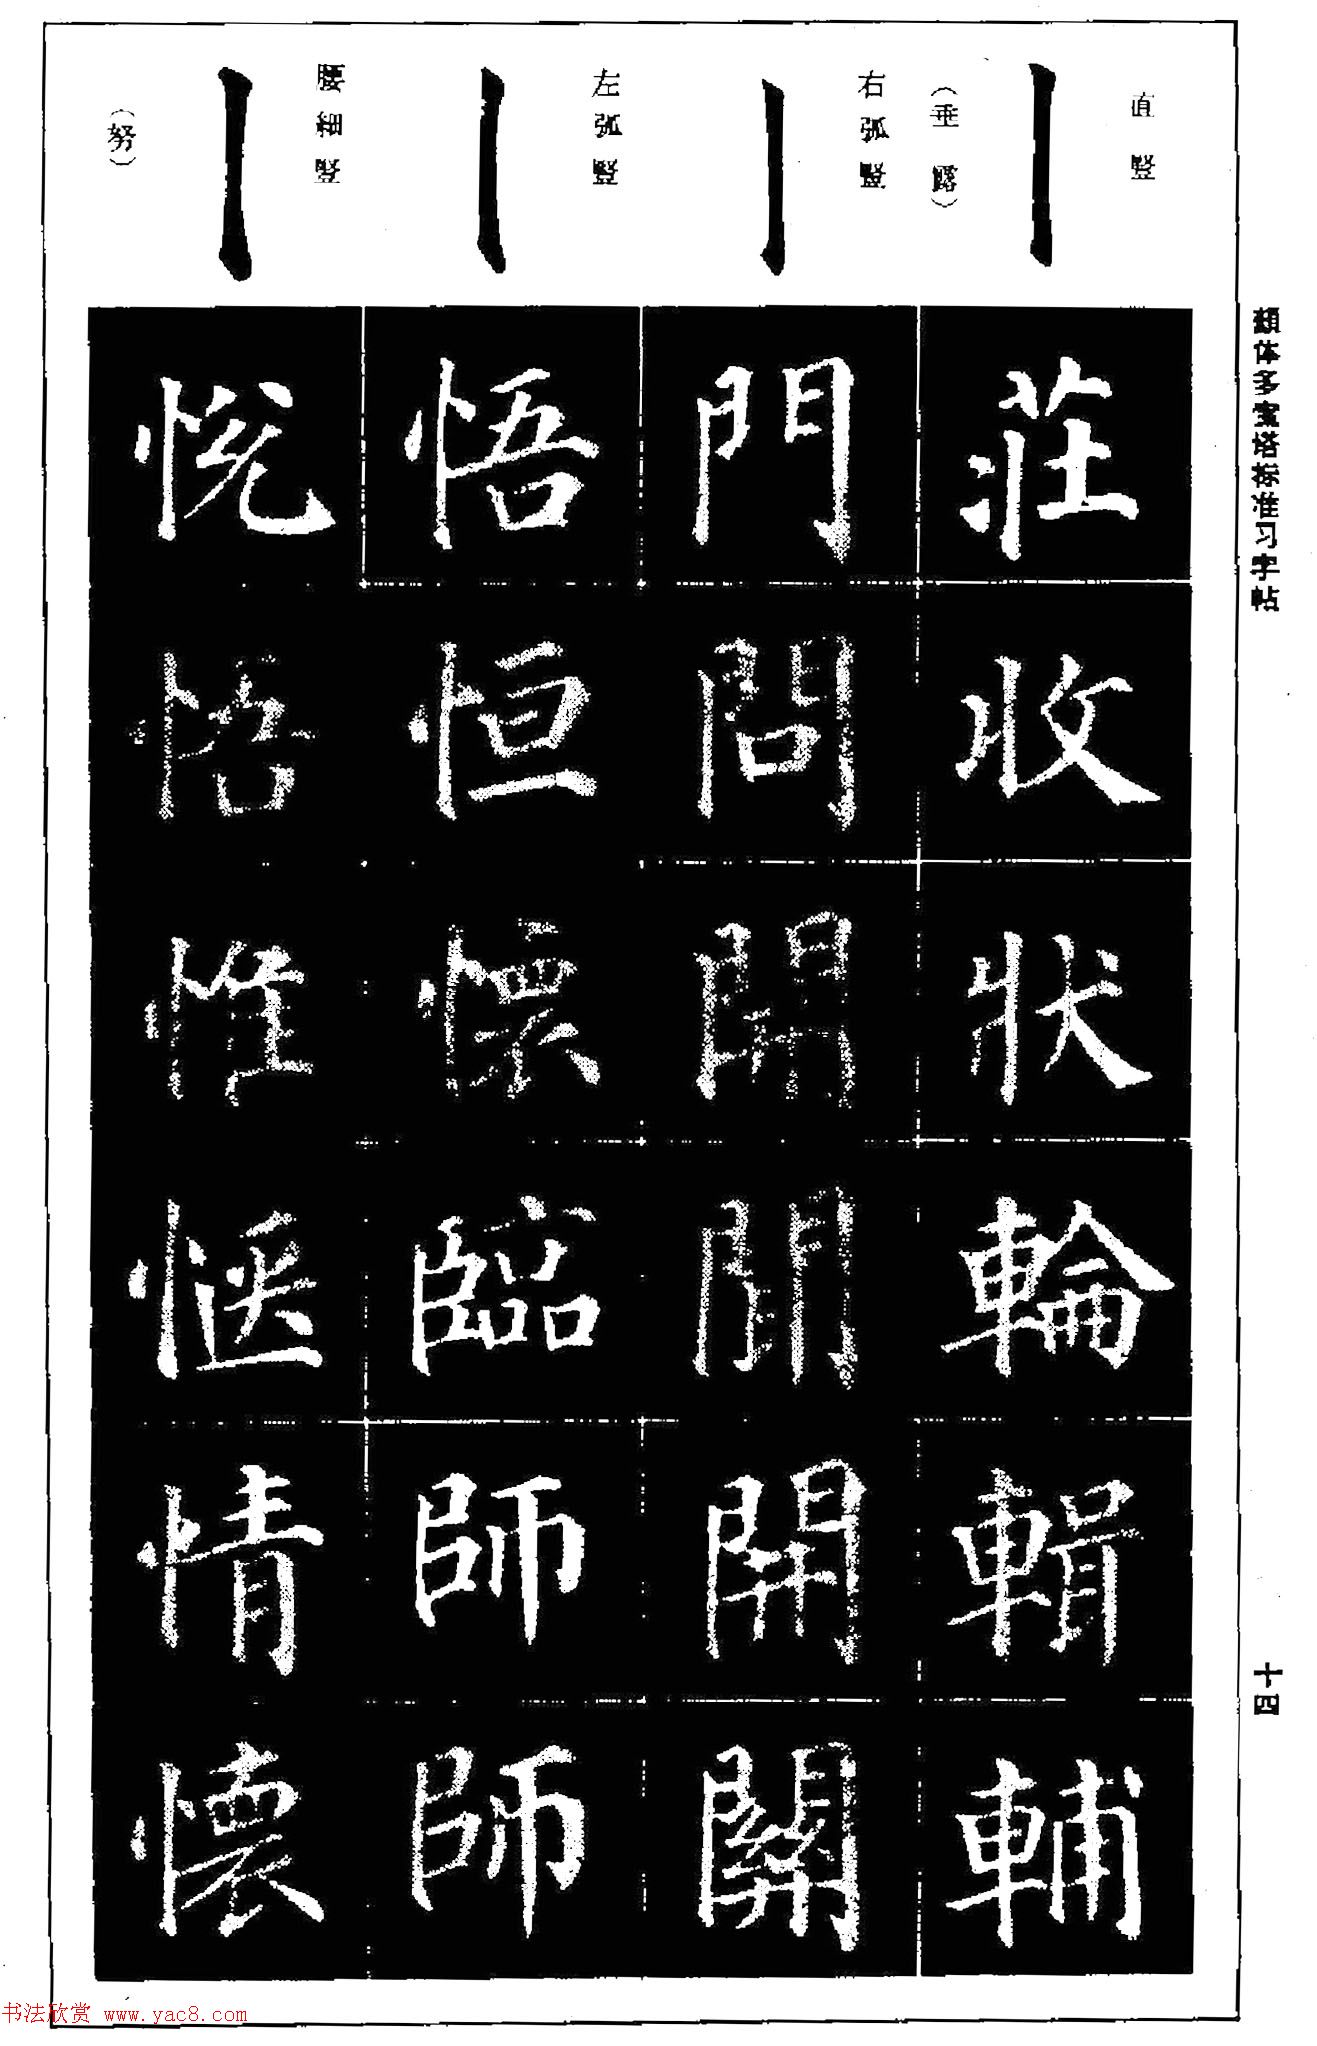 颜体多宝塔标准习字帖
十四
直竖
（垂露）
莊收狀輪輯輔
右弧竖
門問開間開關
左弧竖
悟恒懷臨師師
腰细竖
（努）
悦悟惟愜情懷
书法欣赏 www.yac8.com